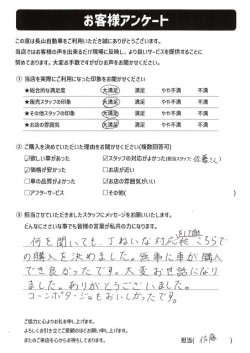 お客様アンケート
この度は長山自動車をご利用いただき誠にありがとうございます。
当店ではお客様の声を出来るだけ現場に反映し、より良いサービスを提供することに
努めております。大変お手数ですがぜひお声をお聞かせください。
① 当店を実際にご利用になった印象をお聞かせください
★総合的な満足度 大満足 満足 やや不満 不満
★販売スタッフの印象 大満足 満足 やや不満 不満
★その他スタッフの印象 大満足 満足 やや不満 不満
★お店の雰囲気 大満足 満足 やや不満 不満
② ご購入を決めていただいた理由をお聞かせください(複数回答可)
☑欲しい車があった ☑スタッフの対応がよかった(担当スタッフ: 佐藤さん)
☑価格が安かった □お店が近い
□車の品質がよかった ☑お店の雰囲気がいい
□アフターサービス □その他( )
③ 担当させていただきましたスタッフにメッセージをお願いいたします。
どんなにささいな事でも皆様の言葉が私共の力になります。
何を聞いても、丁ねいな対応 こちらで
の購入を決めました。無事に車が購入
でき良かったです。大変お世話になり
ました。ありがとうございました。
コーンポタージュもおいしかったです。
ご協力に心よりお礼を申し上げます。
よろしくお引き立てご愛顧のほどお願い申し上げます。
またのご来店を心からお待ちしております。 担当( 佐藤 )